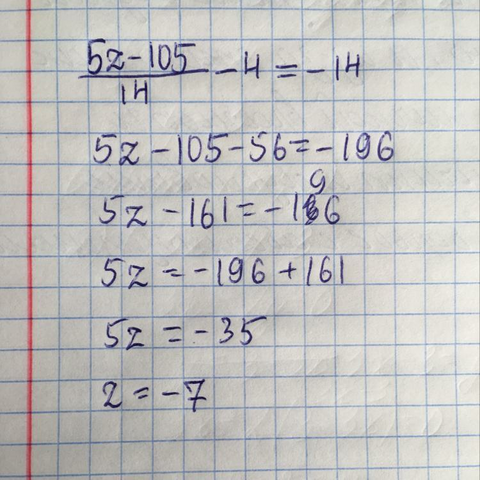 (5z-105)/14 - 4 = -14
5z - 105 - 56 = -196
5z - 161 = -196
5z = -196 + 161
5z = -35
z = -7